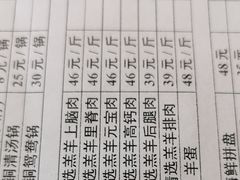 元/锅
清汤锅 25元/锅
鸳鸯锅 30元/锅
选羔羊上脑肉 46元/斤
选羔羊里脊肉 46元/斤
选羔羊元宝肉 46元/斤
选羔羊高钙肉 46元/斤
选羔羊后腿肉 39元/斤
选羔羊排肉 39元/斤
羊蛋 48元/斤
鲜拼盘 48